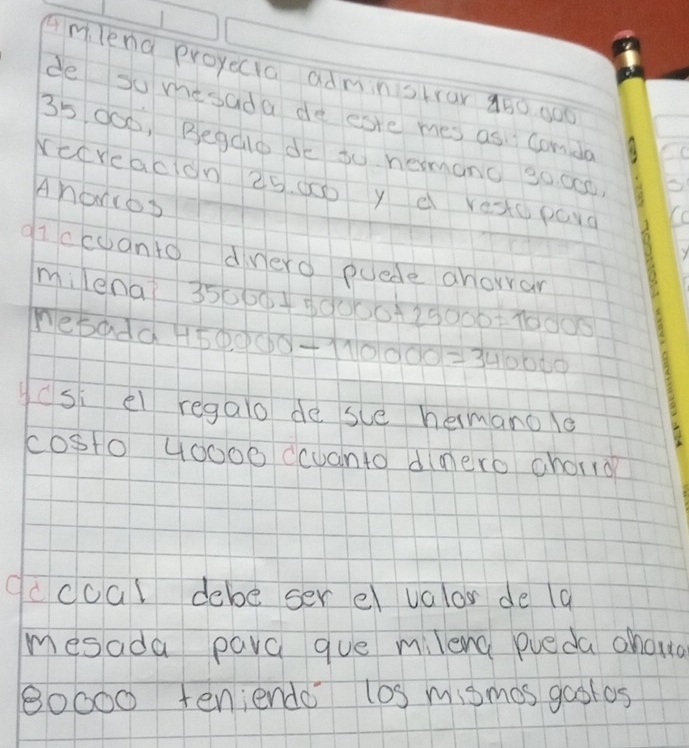 4 milena proyecta administrar 450.000
de su mesada de este mes así: Comida
35.000, Regalo de su hermano 50.000,
recreación 25.000 y el resto para
Ahorros
a¿ cuanto dinero puede ahorrar
milena? 35000+50000+25000=110000
mesada 450000-110000=340000
b¿si el regalo de sue hermano le
costo 40000 ¿cuanto dinero ahorro?
c¿ cual debe ser el valor de la
mesada para que milena pueda ahorra
80000 teniendo los mismos gastos